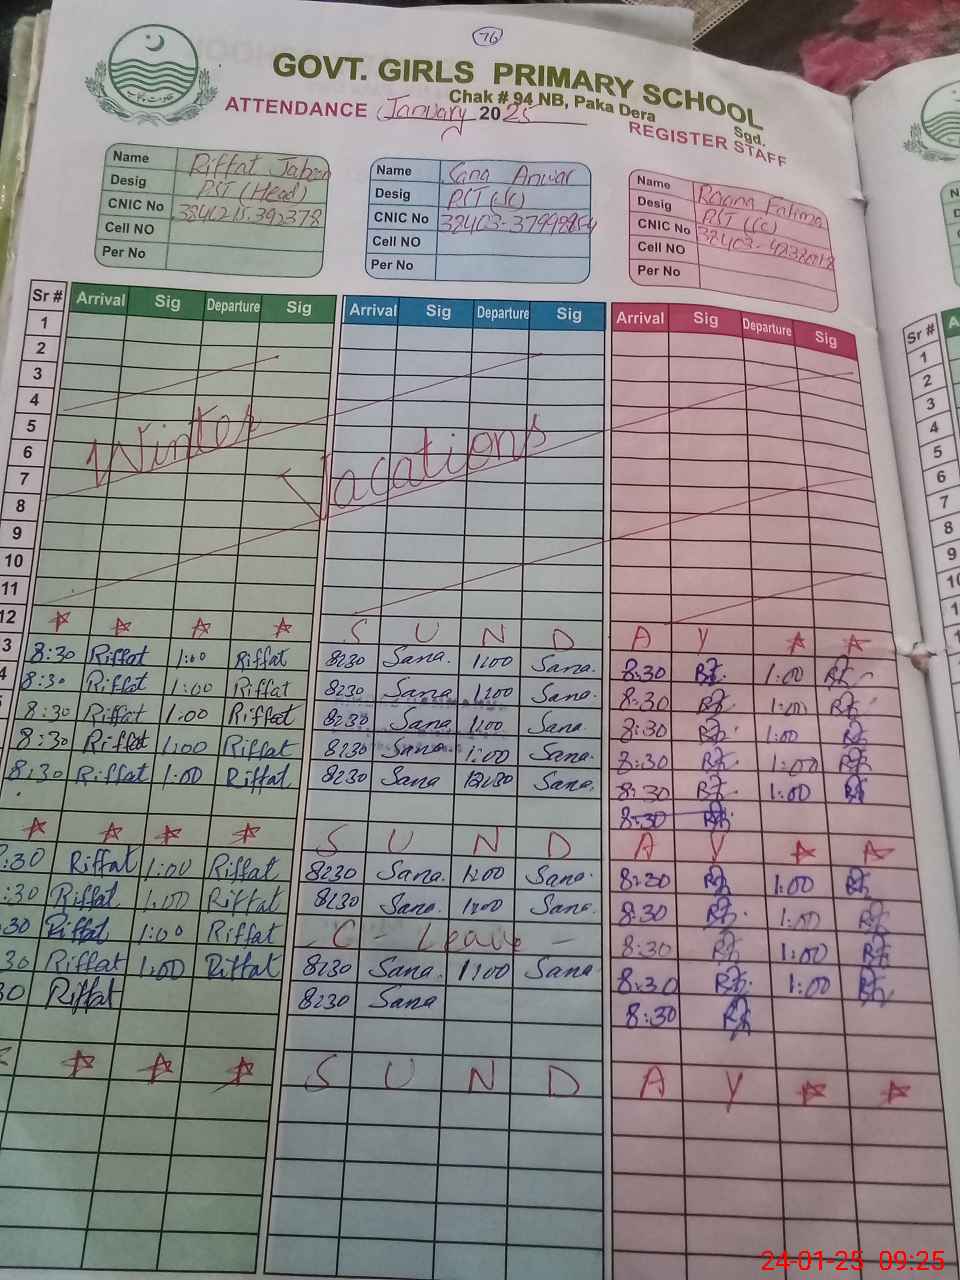 76
GOVT. GIRLS PRIMARY SCHOOL
Chak # 94 NB, Paka Dera
Sgd.
ATTENDANCE January 2025
REGISTER STAFF
Name Riffat Jabeen
Desig PST (Head)
CNIC No
Cell NO
Per No
Name Sana Anwar
Desig PST (Sc)
CNIC No
Cell NO
Per No
Name Raana Fatima
Desig PST (Sc)
CNIC No
Cell NO
Per No
Sr # Arrival Sig Departure Sig Arrival Sig Departure Sig Arrival Sig Departure Sig
1
2
3
4
5
6
7
8
9
10
11
12
Winter Vacations
S U N D A Y
3 8:30 Riffat 1:00 Riffat 8:30 Sana. 1:00 Sana. 8:30 RF. 1:00 RF
4 8:30 Riffat 1:00 Riffat 8:30 Sana 1:00 Sana. 8:30 RF 1:00 RF
8:30 Riffat 1:00 Riffat 8:30 Sana 1:00 Sana. 8:30 RF 1:00 RF
8:30 Riffat 1:00 Riffat 8:30 Sana. 1:00 Sana. 8:30 RF 1:00 RF
8:30 Riffat 1:00 Riffat 8:30 Sana 12:30 Sana. 8:30 RF 1:00 RF
8:30 RF
S U N D A Y
:30 Riffat 1:00 Riffat 8:30 Sana. 1:00 Sana. 8:30 RF 1:00 RF
:30 Riffat 1:00 Riffat 8:30 Sana. 1:00 Sana. 8:30 RF. 1:00 RF
30 Riffat 1:00 Riffat - C - Leave - 8:30 RF 1:00 RF
30 Riffat 1:00 Riffat 8:30 Sana. 1:00 Sana 8:30 RF. 1:00 RF
30 Riffat 8:30 Sana 8:30 RF
S U N D A Y
Sr #
1
2
3
4
5
6
7
8
9
10
24-01-25 09:25